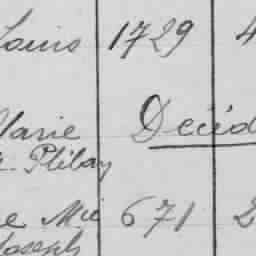 Louis 1729 4
Marie Décéd
Plibay
Mie 671 2
Joseph